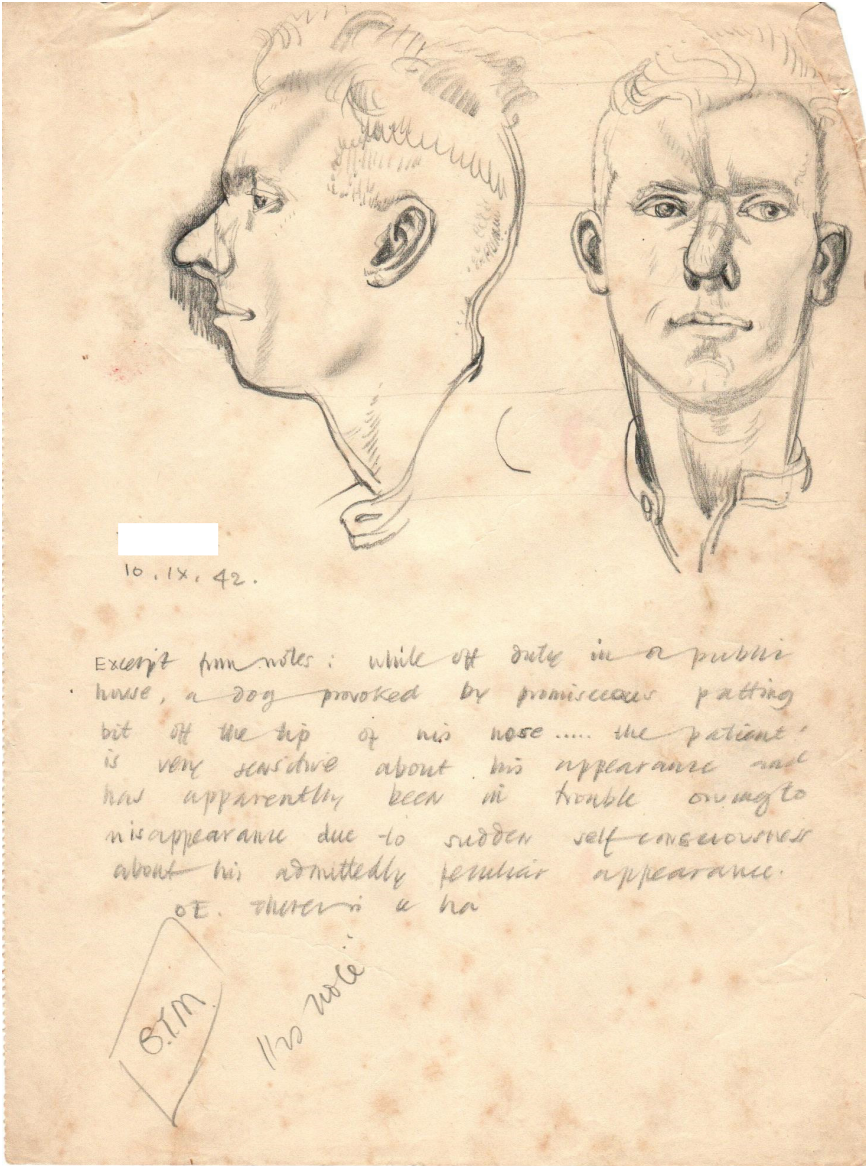 10.IX.42.
Excerpt from notes: while off duty in a public
house, a dog provoked by promisceous patting
bit off the tip of his nose..... the patient
is very sensitive about his appearance and
has apparently been in trouble owing to
disappearance due to sudden self-consciousness
about his admittedly peculiar appearance.
OE. There is a ha